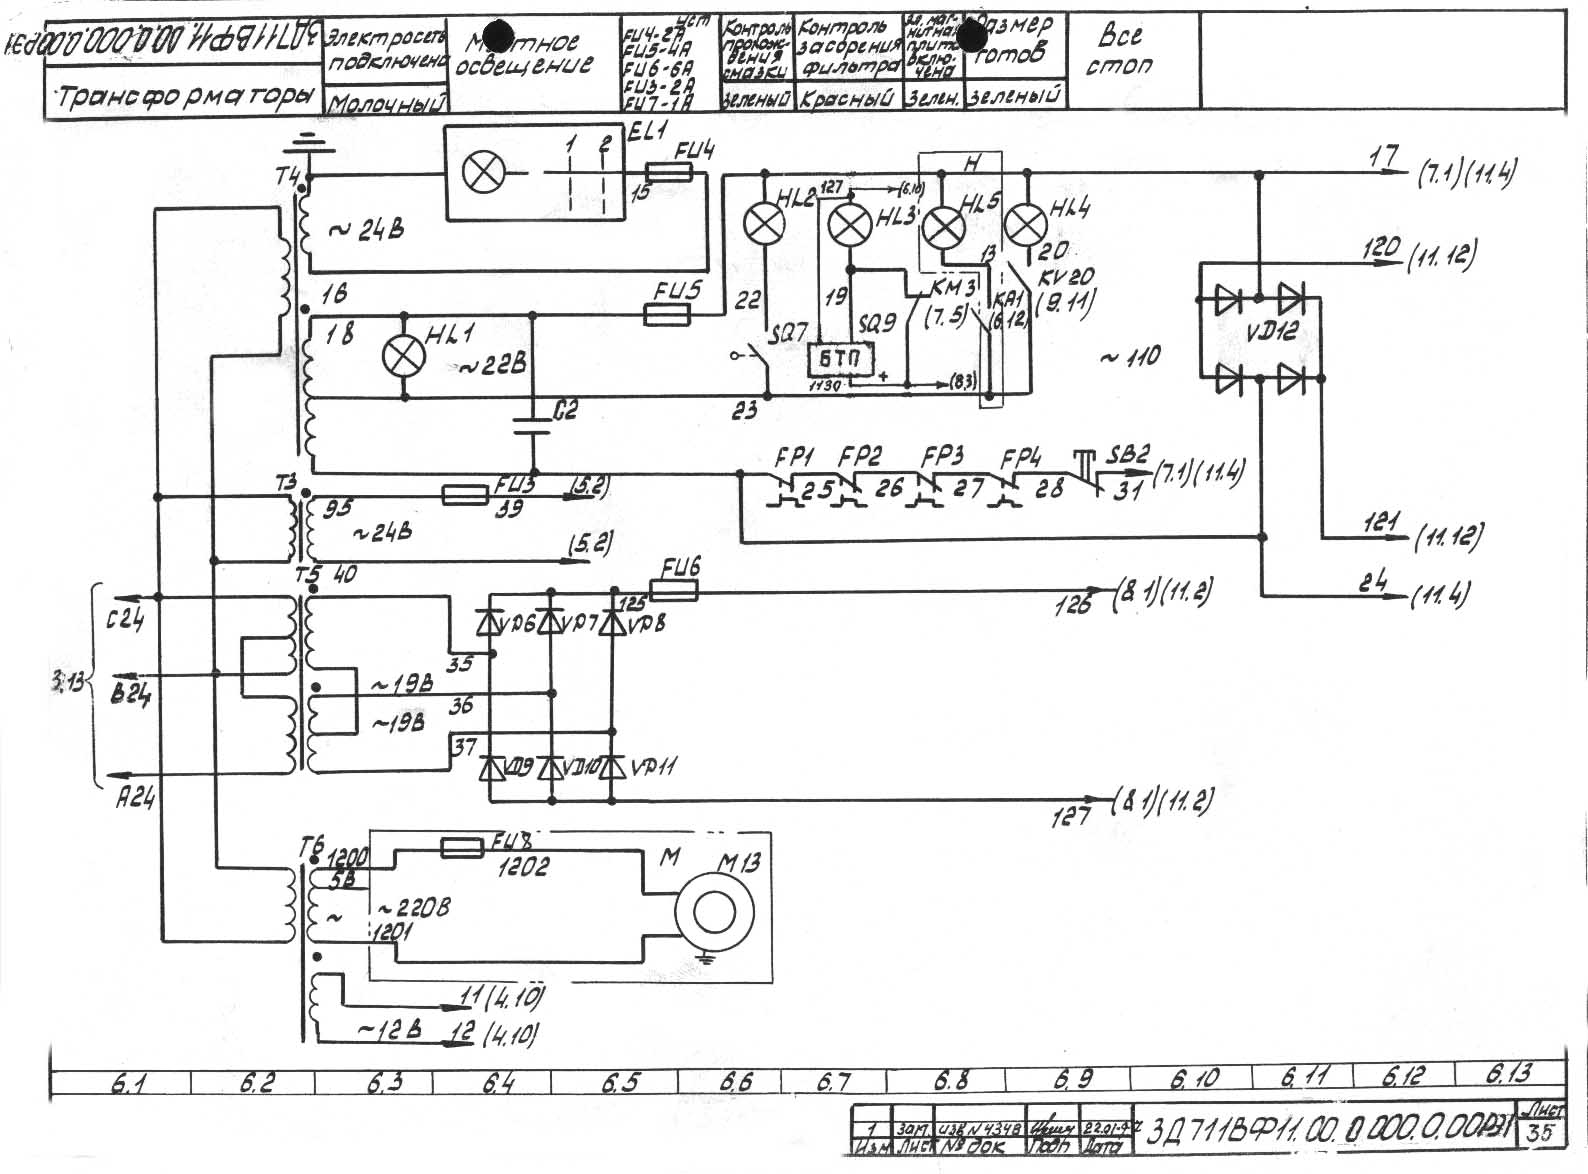 3Д711ВФ11.00.0.000.0.00РЭ1
Трансформаторы
Электросеть
подключена
Молочный
освещение
Уст
FU4-2А
FU5-4А
FU6-6А
FU3-2А
FU7-1А
Контроль
прохож-
дения
смазки
Зеленый
Контроль
засорения
фильтра
Красный
Эл. маг-
нитная
плита
вклю-
чена
Зелен.
Размер
готов
Зеленый
Все
стоп
T4
~24В
16
18
EL1
1
2
15
FU4
FU5
HL1
~22В
C2
HL2
22
SQ7
23
127
(6.10)
HL3
19
SQ9
БТП
1130
+
(8.3)
КМ3
(7.5)
H
HL5
13
КА1
(6.12)
HL4
20
KV20
(9.11)
~110
17
(7.1)(11.4)
120
(11.12)
VD12
121
(11.12)
24
(11.4)
FP1
25
FP2
26
FP3
27
FP4
28
SB2
31
(7.1)(11.4)
T3
95
FU3
39
(5.2)
~24В
40
(5.2)
T5
C24
3.13
B24
A24
35
~19В
36
~19В
37
VD6
VD7
125
VD8
FU6
126
(8.1)(11.2)
VD9
VD10
VD11
127
(8.1)(11.2)
T6
1200
5В
~
~220В
1201
FU8
1202
М
М13
11(4.10)
~12В
12 (4.10)
6.1
6.2
6.3
6.4
6.5
6.6
6.7
6.8
6.9
6.10
6.11
6.12
6.13
1
Зам.
изв N4348
Изм
Лист
№ док
Подп
Дата
3Д711ВФ11.00.0.000.0.00РЭ1
Лист
35